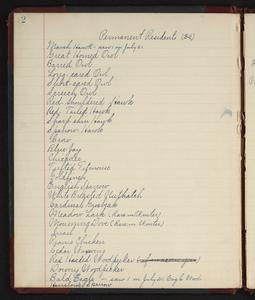 2
Permanent Residents
Marsh Hawk - saw 1 on July 21
Great Horned Owl
Barred Owl
Long-eared Owl
Short-eared Owl
Screech Owl
Red Shouldered Hawk
Red Tailed Hawk
Sharp shin Hawk
Sparrow Hawk
Crow
Blue Jay
Chicadee
Tufted Titmouse
Goldfinch
English Sparrow
White Breasted Nuthatch
Cardinal Grosbeak
Meadow Lark (Rare in Winter)
Mourning Dove (Rare in Winter)
Quail
Prairie Chicken
Cedar Waxwing
Red Headed Woodpecker
Downy Woodpecker
Bald Eagle saw 1 on July
Sparrow